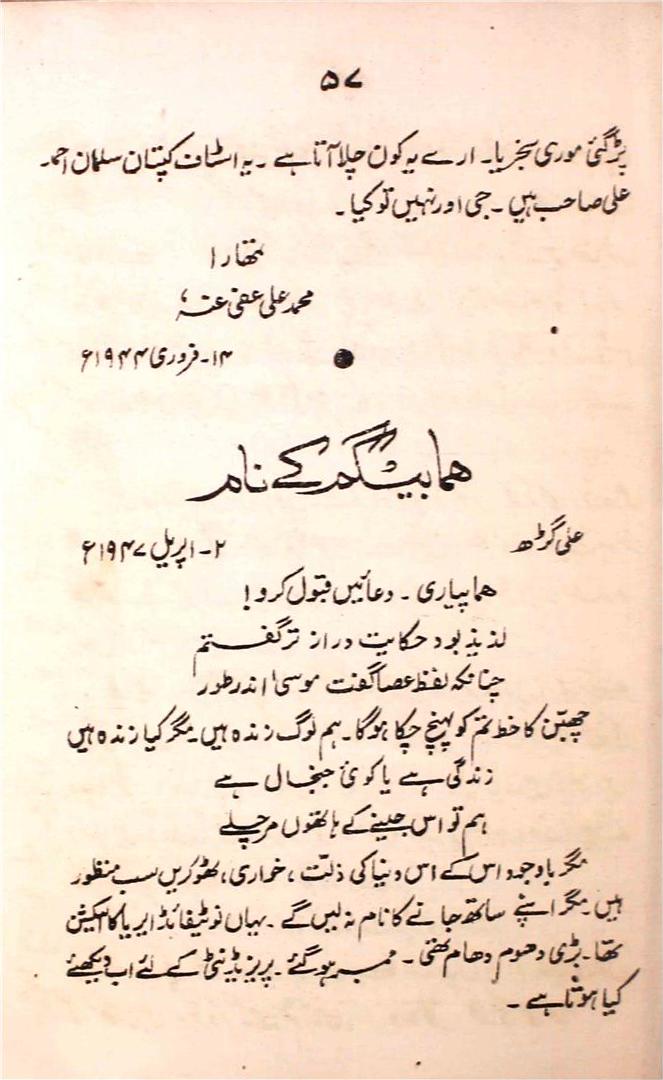 ۵۷
پڑ گئی موری سخریا۔ ارے یہ کون چلا آتا ہے ۔ یہ اسٹاف کپتان سلمان احمد
علی صاحب ہیں ۔ جی اور نہیں تو کیا ۔
تمھارا
محمد علی عفی عنہ
۱۴۔ فروری ۱۹۴۴ء
ھما بیگم کے نام
علی گڑھ
۲۔ اپریل ۱۹۴۷ء
ھما پیاری ۔ دعائیں قبول کرو !
لذیذ بود حکایت دراز تر گفتم
چنانکہ لفظ عصا گفت موسیٰ اندر طور
چھبّن کا خط تم کو پہنچ چکا ہوگا۔ ہم لوگ زندہ ہیں۔ مگر کیا زندہ ہیں
زندگی ہے یا کوئی جنجال ہے
ہم تو اس جینے کے ہاتھوں مر چلے
مگر باوجود اس کے اس دنیا کی ذلّت ، خواری ، ٹھوکریں سب منظور
ہیں۔ مگر اپنے ساتھ جانے کا نام نہ لیں گے ۔ یہاں نوٹیفائڈ ایریا کا الکشن
تھا۔ بڑی دھوم دھام تھی ۔ ممبر ہو گئے ۔ پریزیڈنٹی کے لئے اب دیکھئے
کیا ہوتا ہے ۔